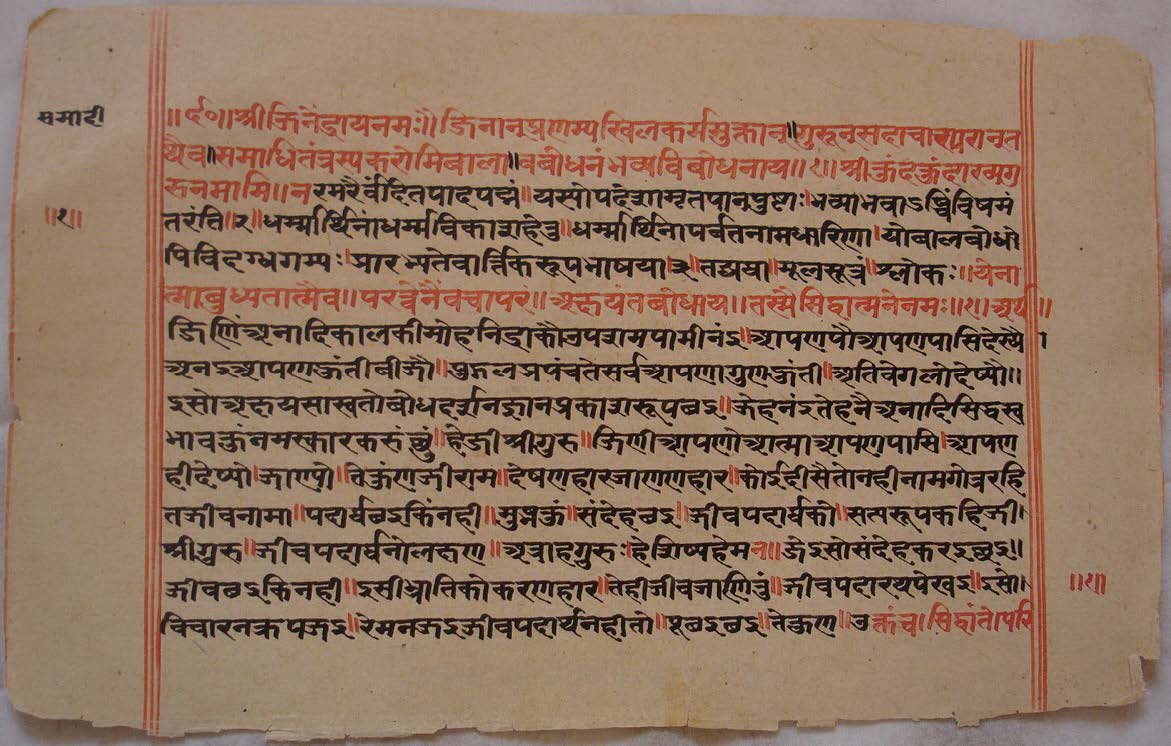 समाटी
॥९०॥श्रीजिनेंद्रायनमः॥ जिनानप्रणम्यखिलकर्ममुक्तान्॥गुरून्सदाचारपरान्त
थैव॥समाधितंत्रस्यकरोमिबाला॥वबोधनंभव्यविबोधनाय॥१॥श्रीकुंदकुंदारव्यगु
रुनमामि॥नरमरैर्वंदितपादपद्मं॥यस्योपदेशामृतपानपुष्टाः॥भव्याभवाऽब्धिंविषमं
॥१॥
तरंति॥२॥धर्म्मार्थिनांधर्म्मविकाशहेतु॥धर्म्मार्थिनापर्वतनामधारिणा।योबालबोधो
पिविदग्धगम्यः॥प्रारभ्यतेवार्त्तिकरूपभाषया॥३॥तद्यथा॥मूलसूत्रं॥श्लोकः॥येना
त्माबुध्यतात्मैव॥परत्वेनैवचापरं॥अक्षयंतबोधाय॥तस्मैसिद्धात्मनेनमः॥१॥अर्थ॥
जिणिंअनादिकालकीमोहनिद्राकौउपशमपामीनंइ॥आपणपौआपणपासिदेख्यै।
अनइआपणकुंतीबीजौ॥पुद्गलप्रपंचतेसर्वआपणागुणकुंती॥अतिवेगलोंदेष्यौ॥
इसोअक्षयसास्वतोबोधदर्शनज्ञानप्रकाशरूपबइ॥जेहनंइतेहनैअनादिसिद्धस्व
भावकुंनमस्कारकरुंछुं॥हेजीश्रीगुरु॥जिणीआपणोआत्माआपणपासि॥आपण
हीदेष्यो॥जाण्यो॥तेकुंणजीराम॥देषणहारजाणणहार॥कोईदीसैतोनहीनामगोत्ररहि
तजीवनामा॥पदार्थबइकिंनही॥मुझकुं॥संदेहबइ॥जीवपदार्थको॥सत्यरूपकहिजी।
श्रीगुरु॥जीवपदार्थनोलक्षण॥अत्राहगुरुः॥हेशिष्यहेमन॥जेइसोसंदेहकरइछइ॥
जीवबइकिनही॥इसीभ्रातिकोकरणहार॥तेहीजीवजाणिवुं॥जीवपदारथपेखइ॥इसो।
॥१॥
विचारनऊपजइ॥रेमनजइजीवपदार्थनहीतो॥पूबइबइ॥तेकुण॥उक्तंच॥सिद्धांतोपरि